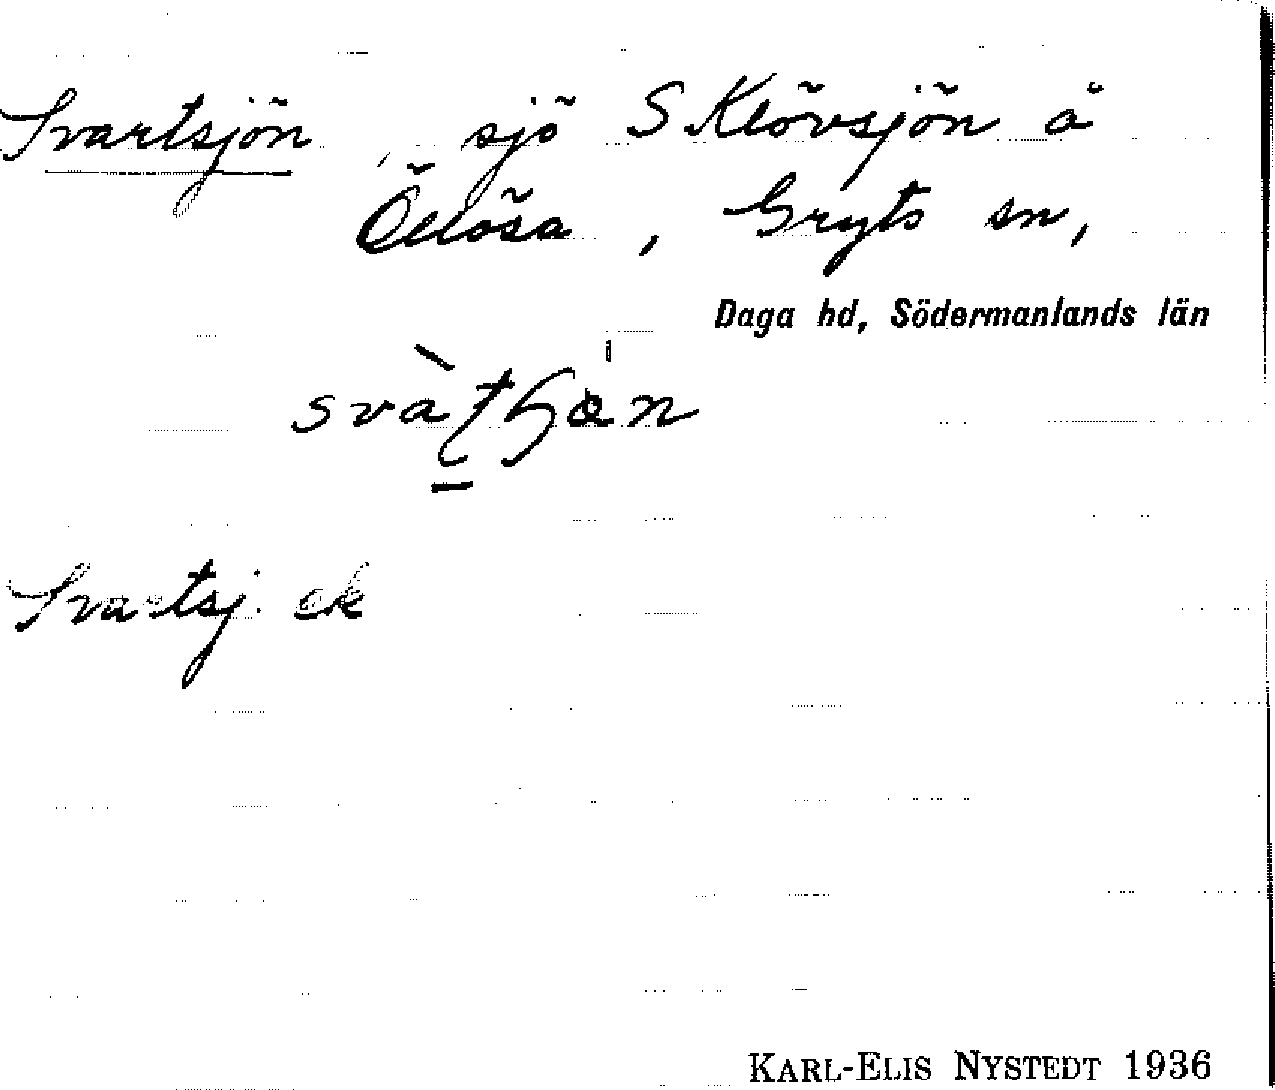 Svartsjön, sjö S Klövsjön å
Öllösa, Gryts sn,
Daga hd, Södermanlands län
Svartsj. ek
KARL-ELIS NYSTEDT 1936